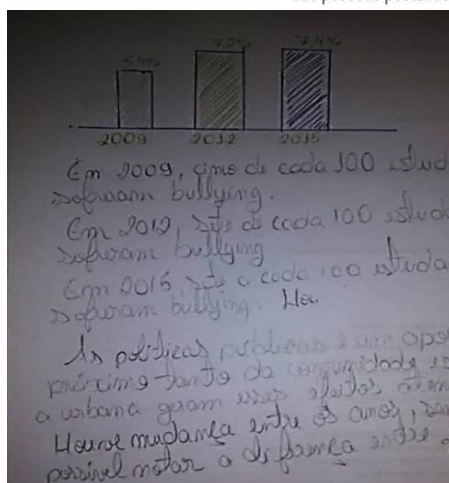 5,4% 7,2% 7,4%
2009 2012 2015
Em 2009, cinco de cada 100 estud
sofreram bullying.
Em 2012, sete de cada 100 estud
sofreram bullying
Em 2015, sete a cada 100 estuda
sofreram bullying. Hou
As políticas públicas e um apo
próximo tanto da comunidade es
a urbana geram esses efeitos
Houve mudança entre os anos,
possível notar a diferença entre